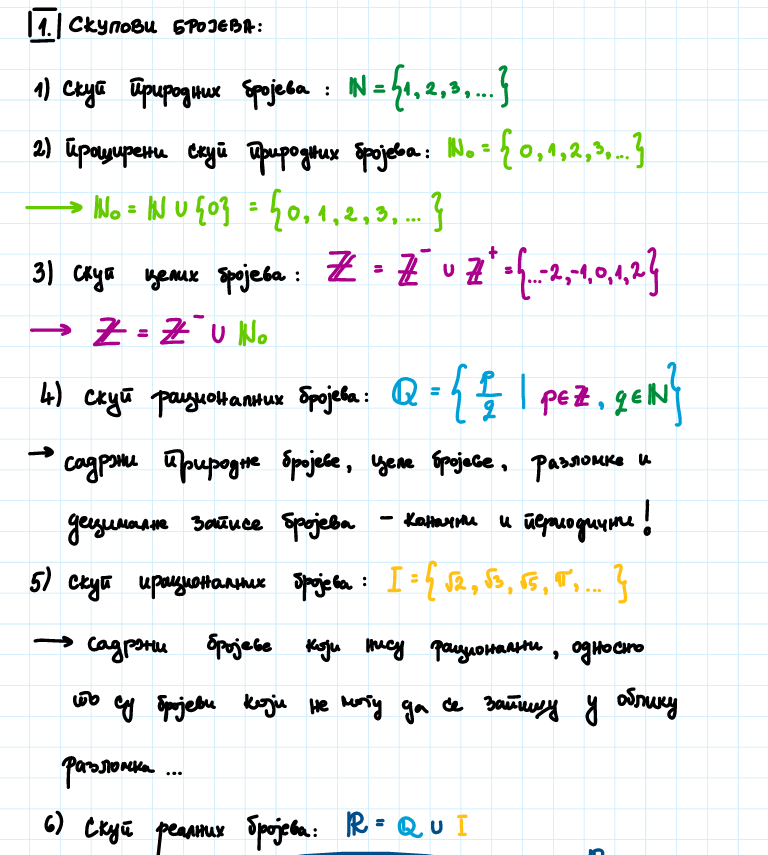 1. СКУПОВИ БРОЈЕВА:
1) Скуп природних бројева : ℕ = {1, 2, 3, ...}
2) Проширени скуп природних бројева: ℕ₀ = {0, 1, 2, 3, ...}
→ ℕ₀ = ℕ ∪ {0} = {0, 1, 2, 3, ...}
3) Скуп целих бројева : ℤ = ℤ⁻ ∪ ℤ⁺ = {...-2, -1, 0, 1, 2}
→ ℤ = ℤ⁻ ∪ ℕ₀
4) Скуп рационалних бројева: ℚ = {p/q | p∈ℤ, q∈ℕ}
→ садржи природне бројеве, целе бројеве, разломке и
децималне записе бројева – коначни и периодични!
5) Скуп ирационалних бројева : I = {√2, √3, √5, π, ...}
→ садржи бројеве који нису рационални, односно
то су бројеви који не могу да се запишу у облику
разломка ...
6) Скуп реалних бројева: ℝ = ℚ ∪ I